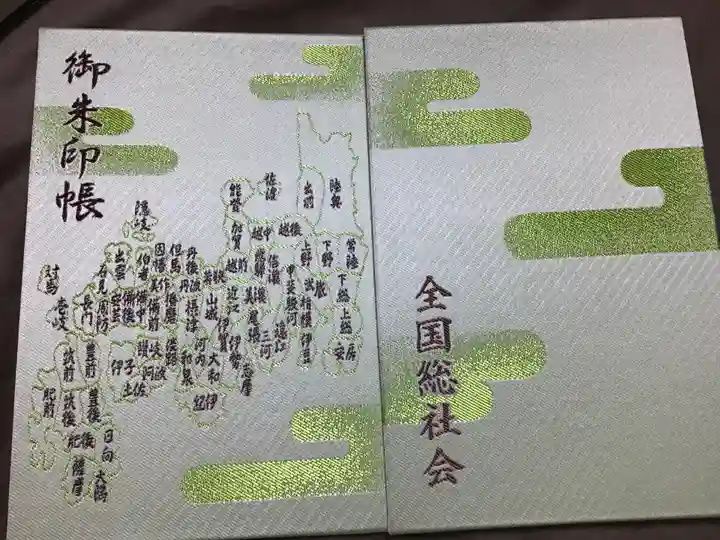 御朱印帳
陸奥
出羽
佐渡
能登
越後
越中
加賀
越前
飛騨
信濃
上野
下野
常陸
下総
上総
安房
武蔵
相模
伊豆
甲斐
駿河
遠江
三河
尾張
美濃
近江
伊賀
伊勢
志摩
若狭
山城
大和
河内
和泉
摂津
紀伊
丹後
丹波
但馬
播磨
淡路
因幡
美作
備前
備中
備後
伯耆
出雲
隠岐
石見
安芸
周防
長門
讃岐
阿波
伊予
土佐
対馬
壱岐
筑前
筑後
豊前
豊後
肥前
肥後
日向
大隅
薩摩
全国総社会